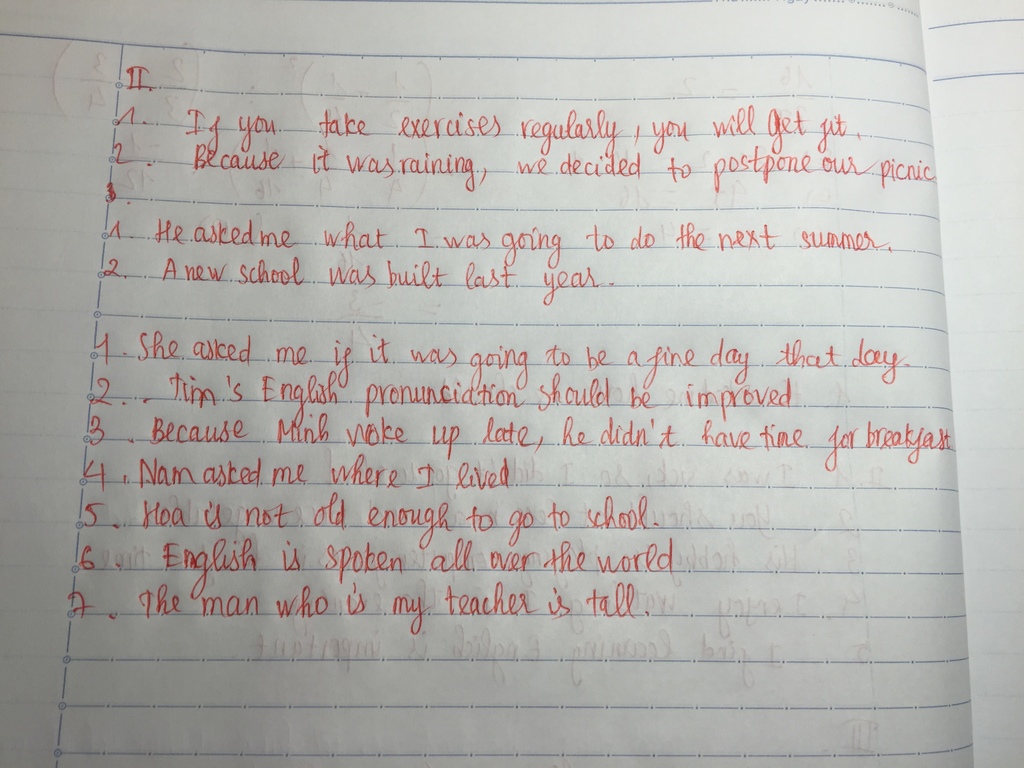 II.
1. If you take exercises regularly, you will get fit.
2. Because it was raining, we decided to postpone our picnic
3.
1 He asked me what I was going to do the next summer.
2. A new school was built last year.
1. She asked me if it was going to be a fine day that day.
2. Tim's English pronunciation should be improved
3. Because Minh woke up late, he didn't have time for breakfast
4. Nam asked me where I lived
5. Hoa is not old enough to go to school.
6. English is spoken all over the world
7. The man who is my teacher is tall.